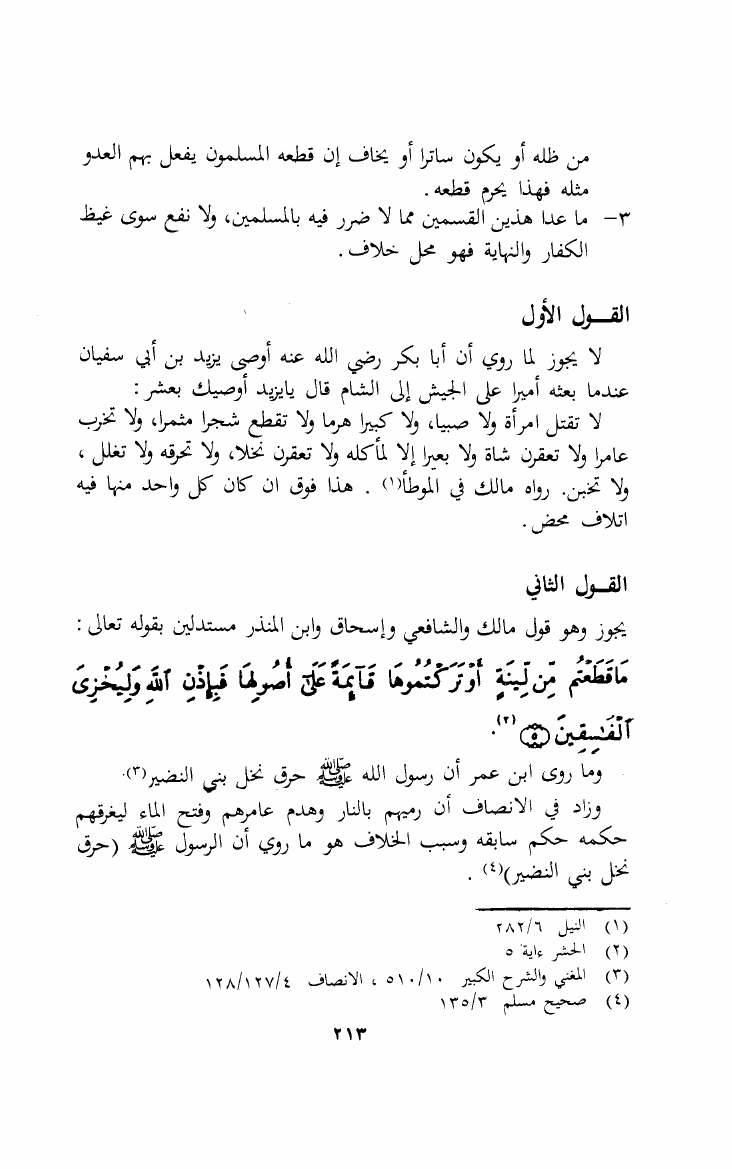 من ظله أو يكون ساترا أو يخاف إن قطعه المسلمون يفعل بهم العدو
مثله فهذا يحرم قطعه .
٣- ما عدا هذين القسمين مما لا ضرر فيه بالمسلمين، ولا نفع سوى غيظ
الكفار والنهاية فهو محل خلاف .
القــول الأول
لا يجوز لما روي أن أبا بكر رضي الله عنه أوصى يزيد بن أبي سفيان
عندما بعثه أميرا على الجيش إلى الشام قال يايزيد أوصيك بعشر :
لا تقتل امرأة ولا صبيا، ولا كبيرا هرما ولا تقطع شجرا مثمرا، ولا تخرب
عامرا ولا تعقرن شاة ولا بعيرا إلا لمأكله ولا تعقرن نخلا، ولا تحرقه ولا تغلل ،
ولا تخبن. رواه مالك في الموطأ(١) . هذا فوق ان كان كل واحد منها فيه
اتلاف محض .
القــول الثاني
يجوز وهو قول مالك والشافعي وإسحاق وابن المنذر مستدلين بقوله تعالى :
مَاقَطَعْتُم مِّن لِّينَةٍ أَوْتَرَكْتُمُوهَا قَآئِمَةً عَلَىٰٓ أُصُولِهَا فَبِإِذْنِ ٱللَّهِ وَلِيُخْزِىَ
ٱلْفَٰسِقِينَ ۝٥ (٢).
وما روى ابن عمر أن رسول الله ﷺ حرق نخل بني النضير(٣).
وزاد في الانصاف أن رميهم بالنار وهدم عامرهم وفتح الماء ليغرقهم
حكمه حكم سابقه وسبب الخلاف هو ما روي أن الرسول ﷺ (حرق
نخل بني النضير)(٤) .
(١) النيل ٢٨٢/٦
(٢) الحشر ءاية ٥
(٣) المغني والشرح الكبير ٥١٠/١٠ ، الانصاف ١٢٨/١٢٧/٤
(٤) صحيح مسلم ١٣٥/٣
٢١٣